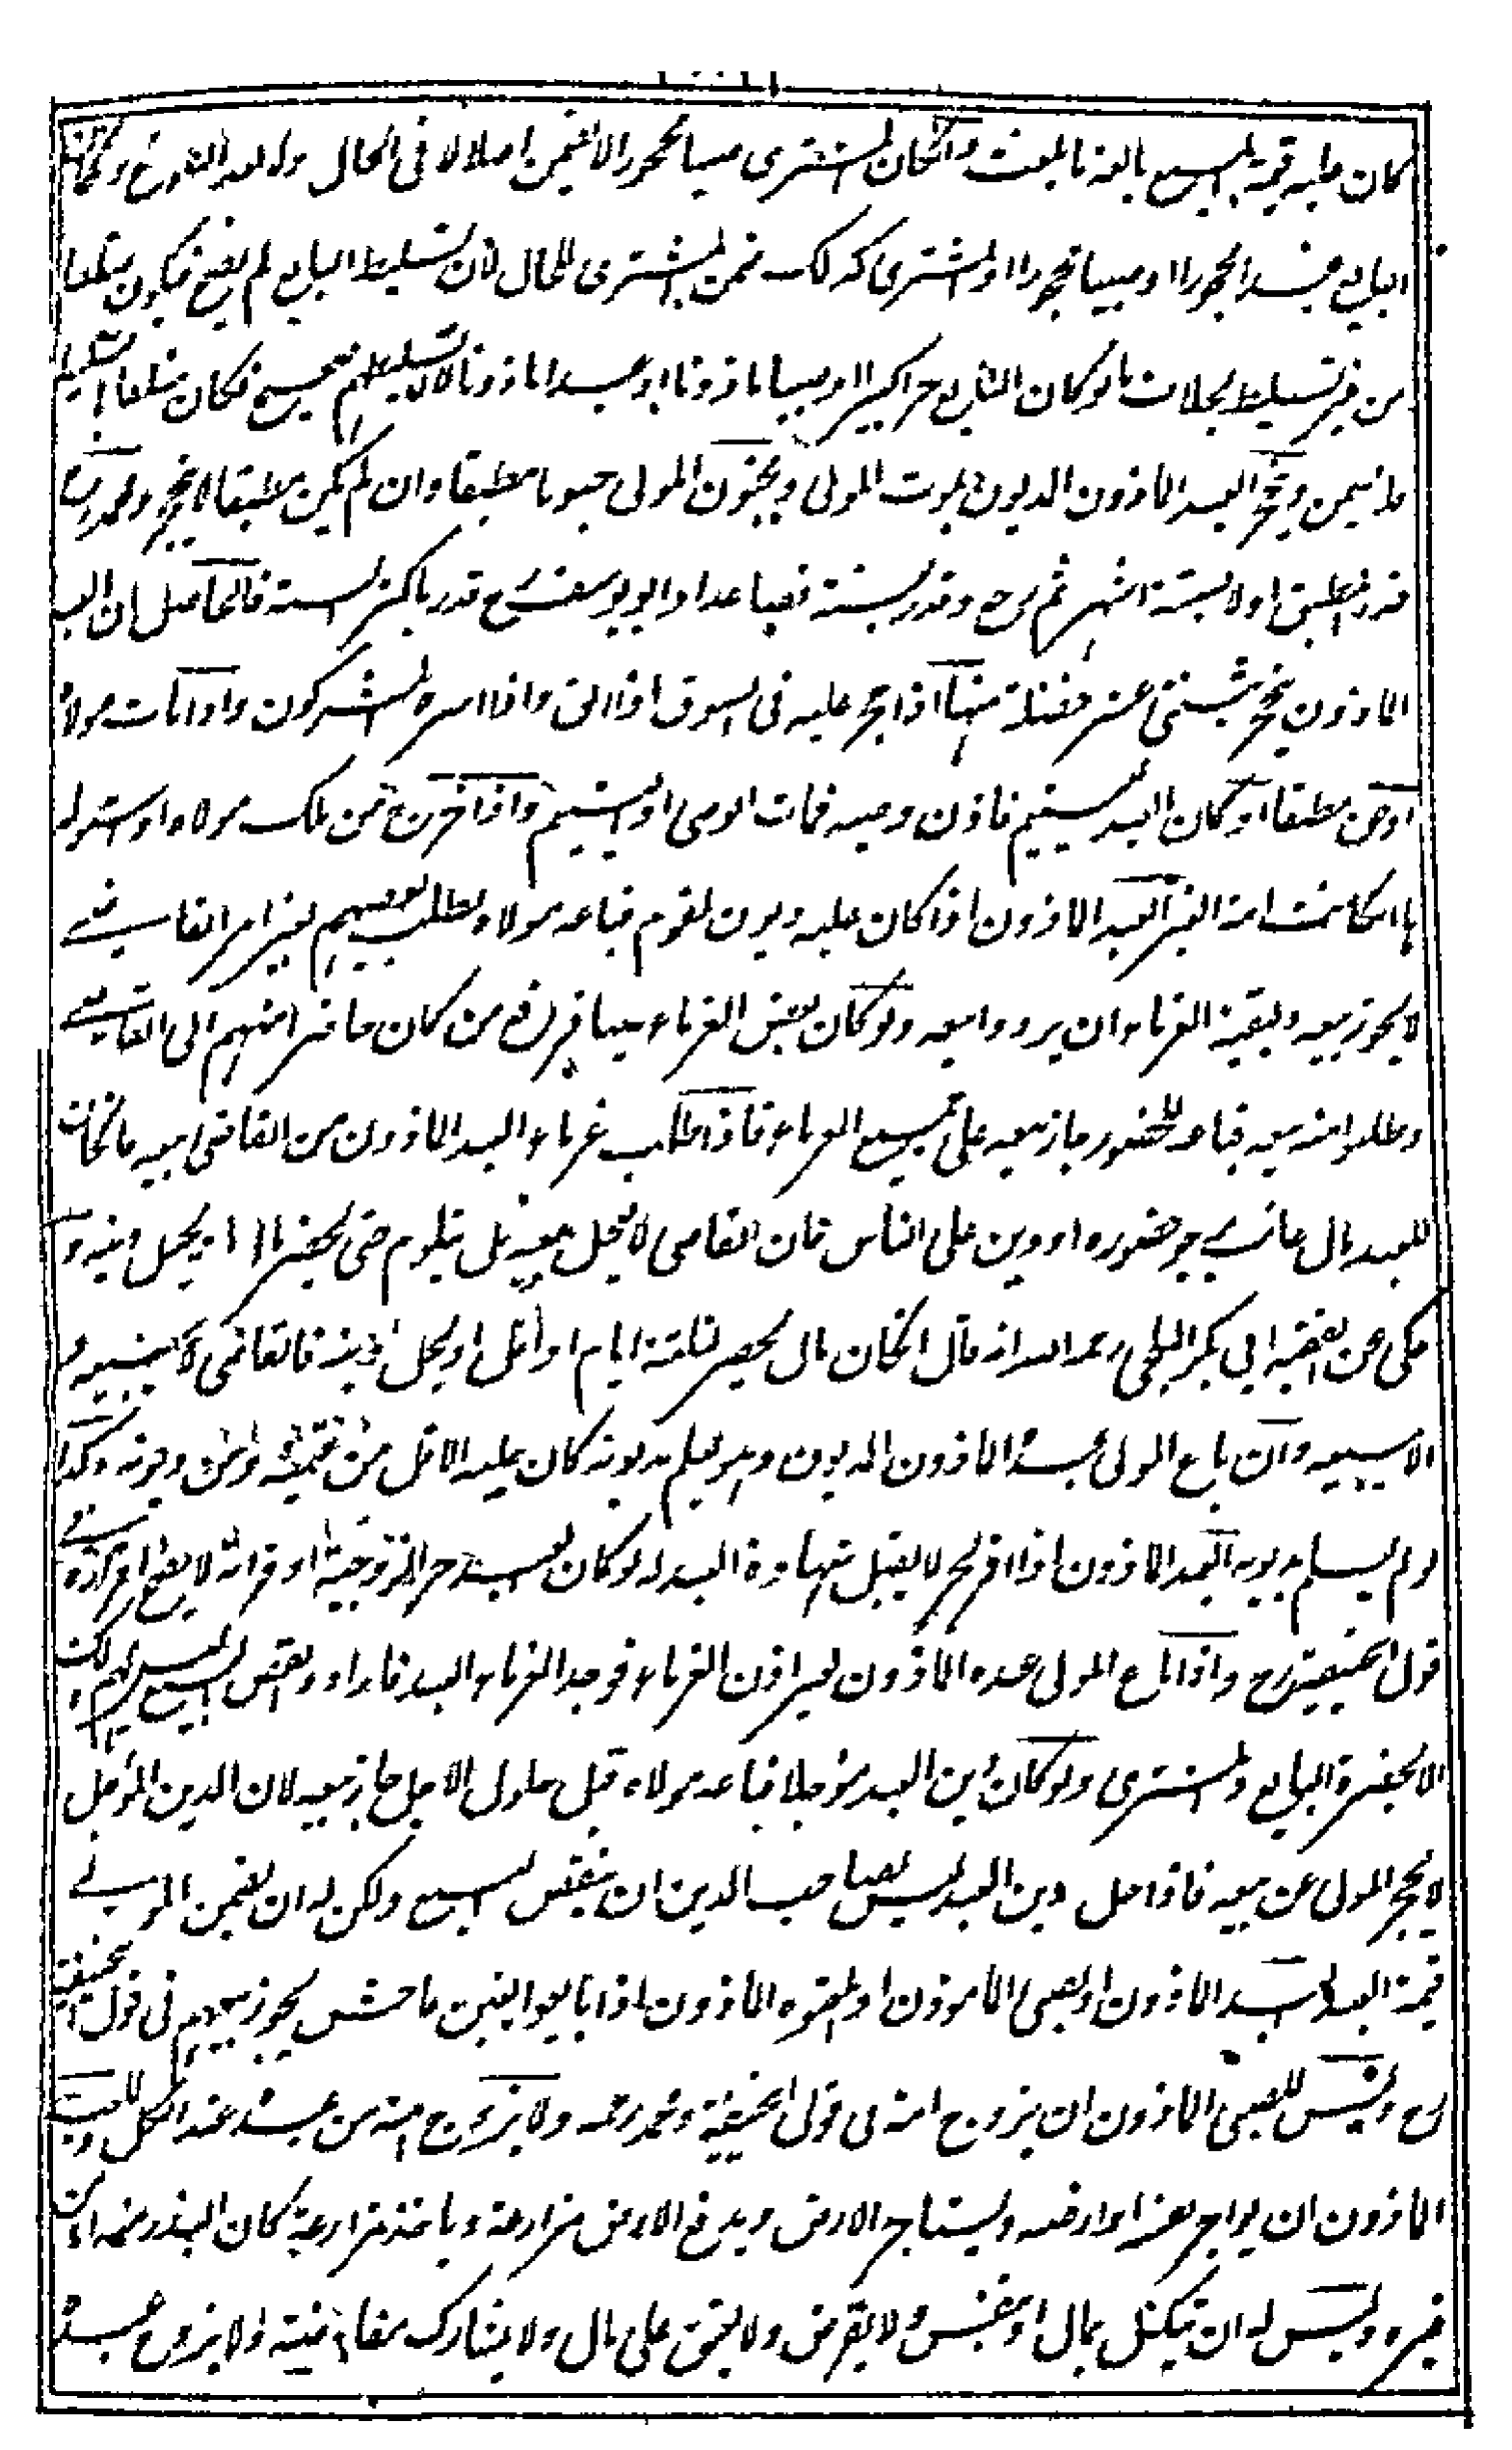 كان عليه قيمة المبيع بالغة ما بلغت وانكان المشترى صبيا محجورا لا يضمن اصلا لا فى الحال ولا بعد البلوغ ولوكان
البايع عبدا محجورا او صبيا محجورا والمشترى كذلك ضمن المشترى للحال لان تسليط البايع لم يصح فيكون متلفا
من غير تسليط بخلاف ما لو كان البايع حرا كبيرا او صبيا ماذونا او عبدا ماذونا لان تسليطهم صحيح فكان متلفا بتسليط
فلا يضمن ويحجر العبد الماذون المديون بموت المولى وبجنون المولى جنونا مطبقا وان لم يكن مطبقا لا يحجر ومحمد رح
قدر المطبق اولا بستة اشهر ثم رجع وقدر بسنة فصاعدا وابو يوسف رح قدر باكثر السنة فالحاصل ان العبد
الماذون يحجر باثنتي عشر خصلة منها اذا حجر عليه فى السوق اذا ابق واذا اسره المشركون واذا مات مولاه
او جن مطبقا او كان العبد ليتيم فاذن وصيه فمات الوصى او اليتيم واذا خرج من ملك مولاه او استولد
ها انكانت امة العبد الماذون اذا كان عليه ديون لقوم فباعه مولاه بطلب بعضهم بغير امر القاضي
لا يجوز بيعه ولبقية الغرماء ان يردوا بيعه ولو كان بعض الغرماء غيبا فرفع من كان حاضرا منهم الى القاضي
وطلبوا منه بيعه فباعه للحضور جاز بيعه على جميع الغرماء فاذا طلب غرماء العبد الماذون من القاضى بيعه فانكان
للعبد مال غائب يرجو حضوره او دين على الناس فان القاضى لا يعجل بيعه بل يتلوم حتى يحضر المال او يحل دينه و
حكى عن الفقيه ابي بكر البلخي رحمه الله انه قال انكان مال يحضر لثلثة ايام او اقل او يحل دينه فالقاضى لا يبيعه و
الا يبيعه وان باع المولى عبده الماذون المديون وهو يعلم بديونه كان عليه الاقل من قيمته ومن ديونه وكذا
لو لم يعلم بديونه العبد الماذون اذا اقر لحر لا يقبل شهادة العبد له لو كان العبد حرا لزوجية او قرابة لا يصح اقراره في
قول ابيحنيفة رح واذا باع المولى عبده الماذون بغير اذن الغرماء فوجد الغرماء العبد فارادوا نقض البيع ليس لهم ذلك
الا بحضرة البايع والمشترى ولو كان دين العبد مؤجلا فباعه مولاه قبل حلول الاجل جاز بيعه لان الدين المؤجل
لا يحجر المولى عن بيعه فاذا حل دين العبد ليس لصاحب الدين ان ينقض البيع ولكن له ان يضمن المولى
قيمة العبد العبد الماذون او الصبى الماموذن او المعتوه الماذون اذا بايعوا بغبن فاحش يجوز بيعهم فى قول ابيحنيفة
رح وليس للصبى الماذون ان يزوج امته فى قول ابيحنيفة ومحمد رحمه ولا يزوج امته من عبده عند الكل وللعبد
الماذون ان يواجر نفسه او ارضه ويستاجر الارض ويدفع الارض مزارعة وياخذ مزارعة كان البذر منه او من
غيره وليس له ان يكفل بمال او بنفس ولا يقرض ولا يعتق على مال ولا يشارك مفاوضة ولا يزوج عبده